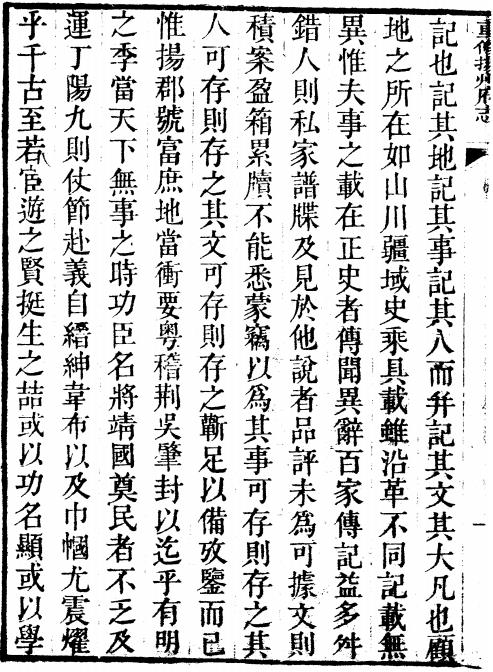 重修揚州府志
記也記其地記其事記其人而幷記其文其大凡也顧
地之所在如山川疆域史乘具載雖沿革不同記載無
異惟夫事之載在正史者傳聞異辭百家傳記益多舛
錯人則私家譜牒及見於他說者品評未爲可據文則
積案盈箱累牘不能悉蒙竊以爲其事可存則存之其
人可存則存之其文可存則存之蘄足以備攷鑒而已
惟揚郡號富庶地當衝要粤稽荆吳肇封以迄乎有明
之季當天下無事之時功臣名將靖國奠民者不乏及
運丁陽九則仗節赴義自縉紳韋布以及巾幗尤震燿
乎千古至若宦遊之賢挺生之喆或以功名顯或以學